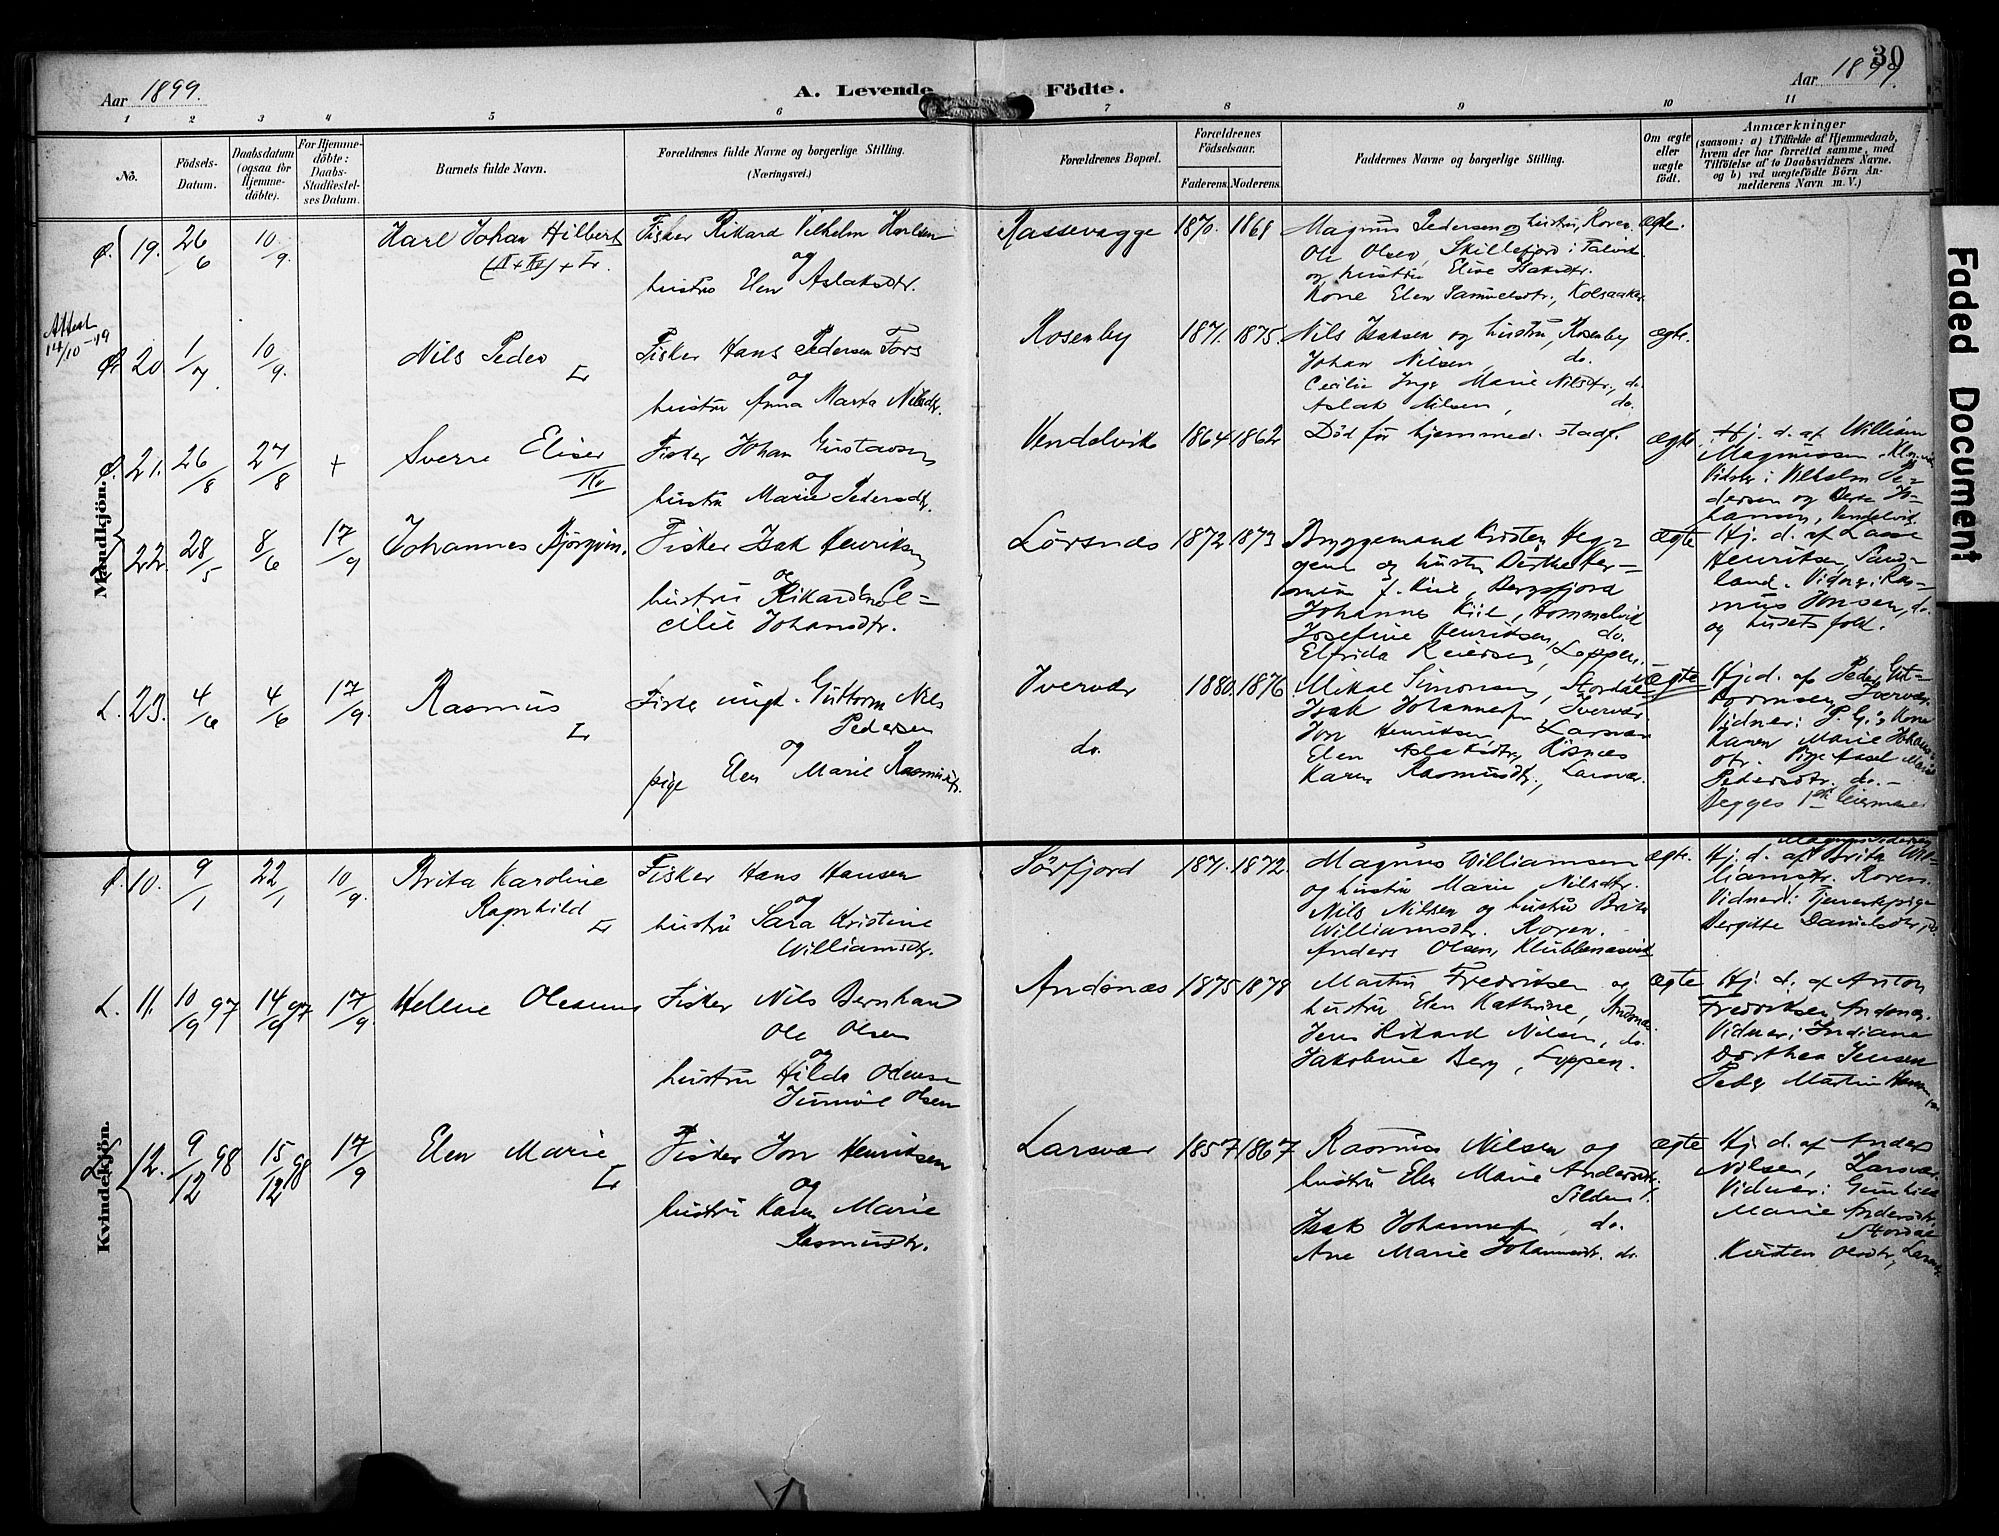 30
Aar 1899.
A. Levende Födte.
Aar 1899
1 2 3 4 5 6 7 8 9 10 11
No.
Födsels-
Datum.
Daabsdatum
(ogsaa for
Hjemme-
döbte).
For Hjemme-
döbte:
Daabs-
Stadfæstel-
ses Datum.
Barnets fulde Navn.
Forældrenes fulde Navne og borgerlige Stilling.
(Næringsvei.)
Forældrenes Bopæl.
Forældrenes
Födselsaar.
Faderens. Moderens.
Faddernes Navne og borgerlige Stilling.
Om ægte
eller
uægte
födt.
Anmærkninger
(saasom: a) i Tilfælde af Hjemmedaab,
hvem der har forrettet samme, med
Tilföielse af to Daabsvidners Navne.
og b) ved uægtefödte Börn An-
melderens Navn m. V.)
Mandkjön.
19. 26/6 10/9.
Karl Johan Hilbert
Fisker Rikard Vilhelm Karlsen
og
hustru Elen Aslaksdtr.
Rassevagge 1870. 1868
Magnus Pedersen og hustru, Koren.
Ole Olsen, Skillefjord i Talvik
og hustru Elise Isaksdtr.
Kone Elen Samuelsdtr., Kolsaaker
ægte.
Attest
14/10-19
20. 1/7 10/9.
Nils Peder
Fisker Hans Pedersen Fors
og
hustru Anna Marta Nilsdtr.
Rosenby 1871. 1875.
Nils Isaksen og hustru, Rosenby
Johan Nilsen, do.
Cecilie Inge Marie Nilsdtr., do
Aslak Nilsen, do.
ægte.
21. 26/8 27/8 +
Sverre Eliser
Fisker Johan Gustavsen
og
hustru Marie Pedersdtr.
Vendelvik 1864 1862
Död för hjemmed. stadf.
ægte
Hj. d. af William
Magnussen,
Vidner: Vilhelm Pe-
dersen og
Vendelvik
22. 28/5 8/6 17/9
Johannes Björgvin.
Fisker Isak Henriksen
og
hustru Rikardine Ce-
cilie Johansdtr.
Lörsnæs 1872 1873
Bryggemand Kristen Heg-
gene og hustru Dorthe Her-
mine f. Kiil, Bergsfjord
Johannes Kiil, Hommelvik
Josefine Henriksen, do.
Elfrida Reiersen, Loppen.
ægte
Hj. d. af Lasse
Henriksen, Sand-
land. Vidner: Ras-
mus Jonsen, do.
og husets folk.
L. 23. 4/6 4/6 17/9.
Rasmus
Fisker ungk. Guttorm Nils
Pedersen
og
pige Elen Marie Rasmusdtr.
Iververv 1880. 1876.
do.
Mikal Simonsen, Stordal
Isak Johannesen, Iververv
Jon Henriksen, Larsvær
Elen Aslaksdtr, Rösnæs
Karen Rasmusdtr., Larsvær.
uægte
Hj. d. af Peder Gut-
tormsen,
Vidner: P. G.'s Kone
Karen Marie Johans-
dtr. Pige Marie
Pedersdtr. do.-
Begges 1ste leiermaal
Kvindekjön.
10. 9/1 22/1 10/9.
Brita Karoline
Ragnhild
Fisker Hans Hansen
og
hustru Sara Kristine
Williamsdtr.
Sörfjord 1871. 1872.
Magnus Williamsen
og hustru Marie Nilsdtr.
Nils Nilsen og hustru Brita
Williamsdtr. Koren.
Anders Olsen, Klubbenesvik
ægte.
Magnus Pedersen
Hj. d. af Brita Wil-
liamsdtr. Koren.
Vidner: Tjenestepige
Bergitte Danielsdtr, do.
L. 11. 10/9 97 14/9 97 17/9.
Helene
Fisker Nils Bernhard
Ole Olsen
og
hustru Hilda
Olsen
Andsnæs 1875 1878
Martin Fredriksen og
hustru Elen Kathrine, Andsnæs
Jens Rikard Nilsen, do.
Jakobine Berg, Loppen.
ægte
Hj. d. af Anton
Fredriksen, Andsnæs.
Vidner: Indiane
Dorthea Jensen
Peder Martin Hansen
L. 12. 9/12 98 15/12 98 17/9
Elen Marie
Fisker Jon Henriksen
og
hustru Karen Marie
Rasmusdtr.
Larsvær 1857 1867
Rasmus Nilsen og
hustru Elen Marie Andersdtr.
Silden.
Isak Johannesen, do.
Ane Marie Johannesdtr. do.
ægte
Hj. d. af Anders
Nilsen, Larsvær.
Vidner: Gunhild
Marie Andersdtr,
Stordal
Kirsten Olsdtr, Larsvær
Faded Document